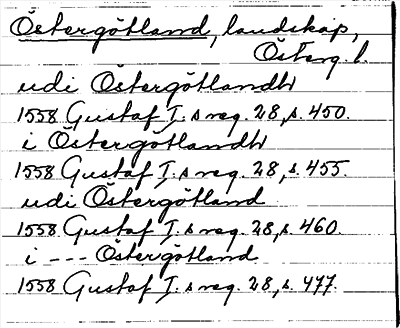 Östergötland, landskap,
Österg. l.
udi Östergötlandh
1558 Gustaf I. s reg. 28, s. 450.
i Östergötlandh
1558 Gustaf I. s reg. 28, s. 455.
udi Östergötland
1558 Gustaf I. s reg. 28, s. 460.
i --- Östergötland
1558 Gustaf I. s reg. 28, s. 477.